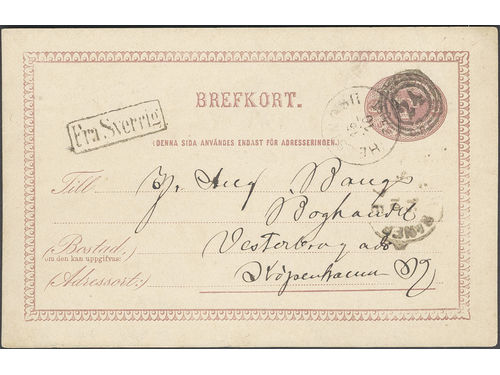 BREFKORT.
Fra Sverrig
24
(DENNA SIDA ANVÄNDES ENDAST FÖR ADRESSERINGEN.)
Till
Hr. Aug Bangs
Boghandel
(Bostad:
om den kan uppgifvas:
Vesterbrogade
(Adressort:)
Köpenhamn